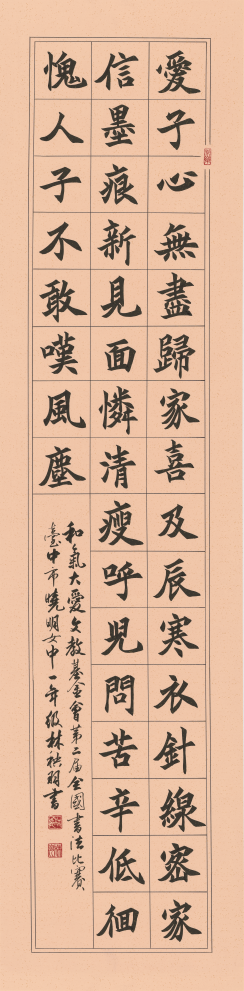 愛子心無盡歸家喜及辰寒衣針線密家
信墨痕新見面憐清瘦呼児問苦辛低徊
愧人子不敢嘆風塵
和氣大愛文教基金會第二屆全國書法比賽
臺中市曉明女中一年級林祐羽書